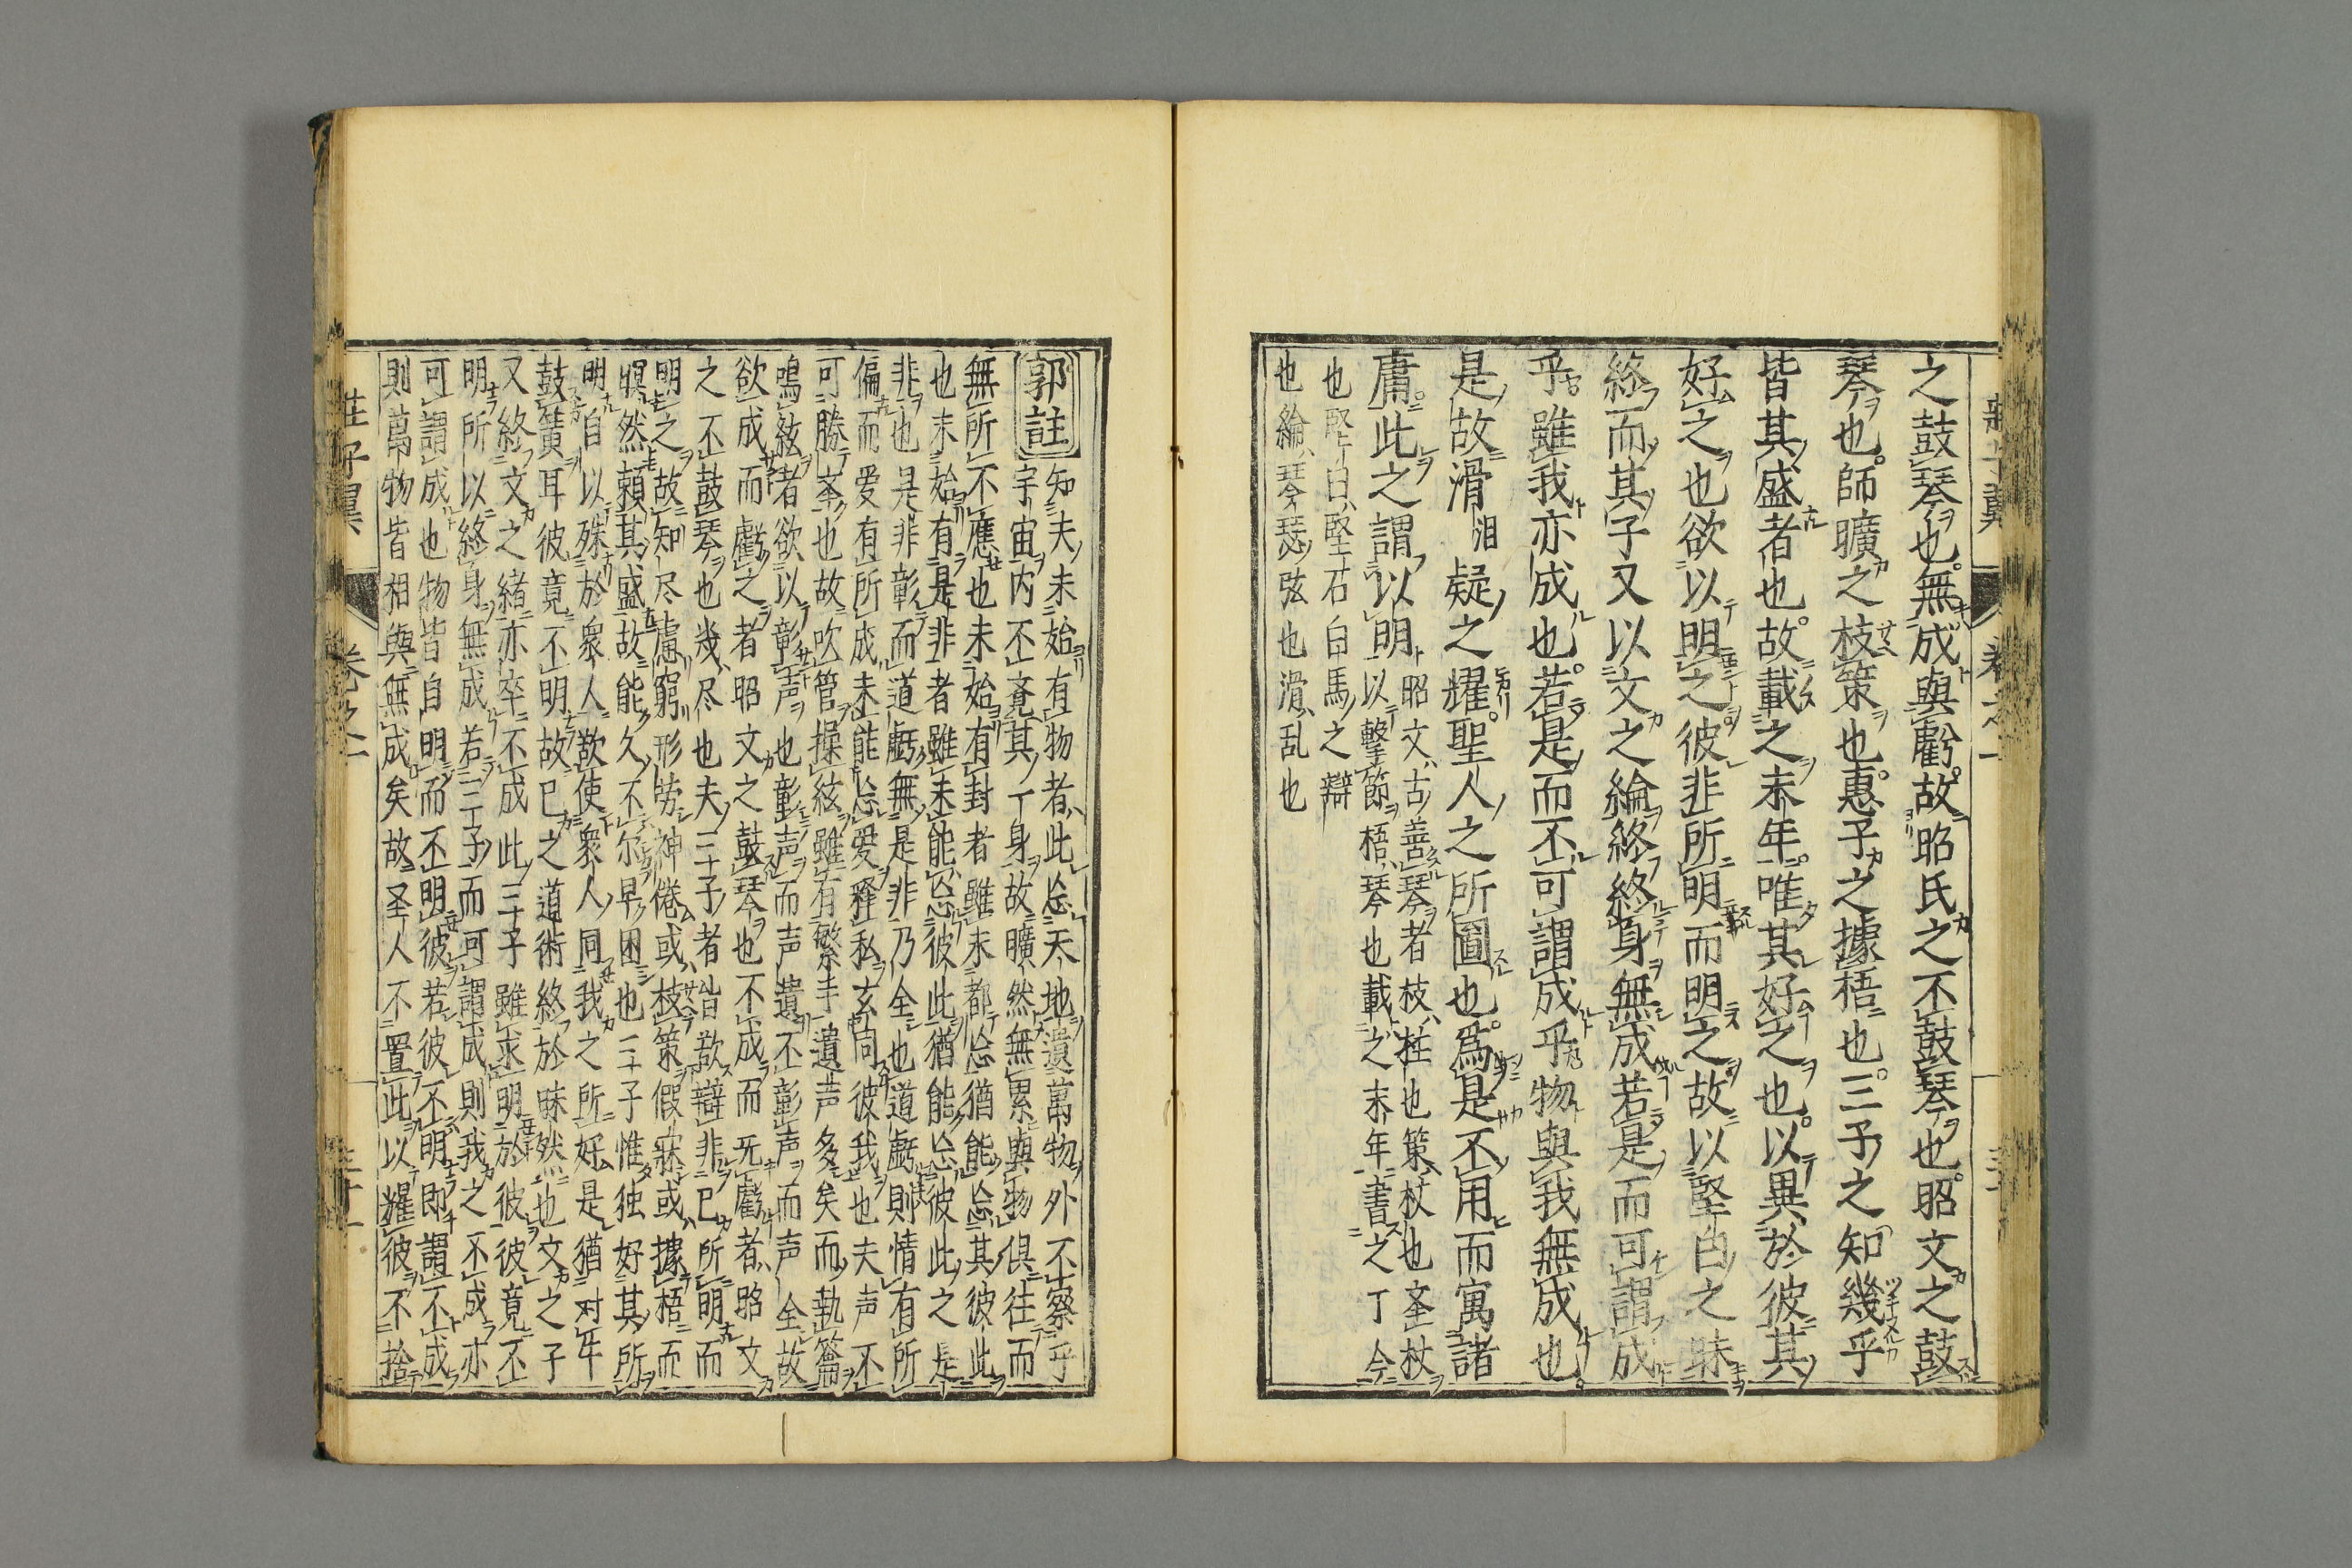 之鼓琴也。無成與虧。故昭氏之不鼓琴也。昭文之鼓
琴也。師曠之枝策也。惠子之據梧也。三子之知幾乎
皆其盛者也。故載之末年。唯其好之也。以異於彼其
好之也欲以明之彼非所明而明之故以堅白之昧
終而其子又以文之綸終終身無成若是而可謂成
乎雖我亦成也。若是而不可謂成乎物與我無成也。
是故滑汨疑之耀。聖人之所圖也。爲是不用而寓諸
庸。此之謂以明
昭文古善琴者枝柱也策杖也㚆杖
以擊節梧琴也載之末年書之丁今
也堅白堅石白馬之辯
也綸琴瑟弦也滑乱也
郭註
知夫未始有物者此忘天地遺萬物外不察乎
宇宙内不竟其丁身故曠然無累與物俱往而
無所不應也未始有封者雖未都忘猶能忘其彼此
也未始有是非者雖未能忘彼此猶能忘彼此之是
非也是非彰而道虧無是非乃全也道虧則情有所
偏而爱有所成未能忘爱釋私玄同彼我也夫声不
可勝㚆也故吹管操絃雖有繁手遺声多矣而執籥
鳴絃者欲以彰声也彰声而声遺不彰声而声全故
欲成而虧之者昭文之鼓琴也不成而无虧者昭文
之不鼓琴也幾尽也夫三子者皆欲辯非己所明而
明之故知尽慮窮形勞神倦或枝策假寐或據梧而
瞑然賴其盛故能久不尔早困也三子惟独好其所
明自以殊於衆人欲使衆人同我之所好是猶对牛
鼓簧耳彼竟不明故己之道術終於昧然也文之子
又終文之緒亦卒不成此三子雖求明於彼彼竟不
明所以終身無成若三子而可謂成則我之不成亦
可謂成也物皆自明而不明彼若彼不明即謂不成
則萬物皆相與無成矣故圣人不置此以耀彼不捨
莊子翼　卷之二　三十一